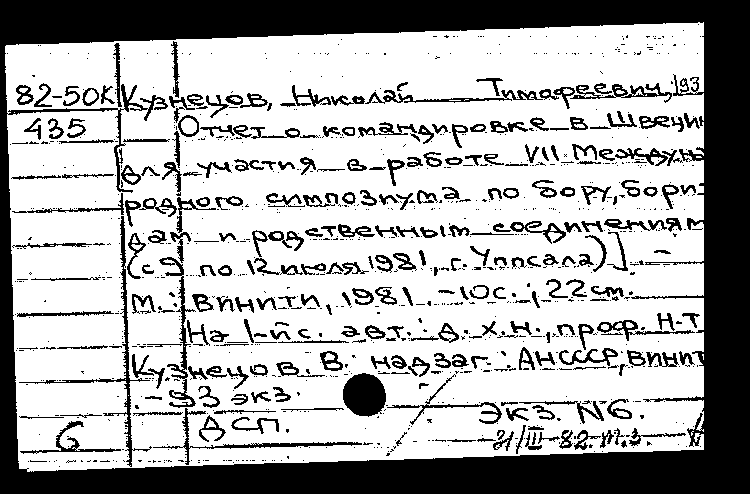 82-50К Кузнецов, Николай Тимофеевич, 193
435 Отчет о командировке в Швецию
[для участия в работе VII Междуна
родного симпозиума по бору, бори-
дам и родственным соединениям
(с 9 по 12 июля 1981, г. Уппсала)]. -
М.: ВИНИТИ, 1981. - 10с.; 22см.
На 1-й с. авт.: д. х.н., проф. Н.Т
Кузнецов. В. надзаг.: АНСССР, ВИНИТ
. - 93 экз.
б ДСП. Экз. N6.
31/III-82. т.з.